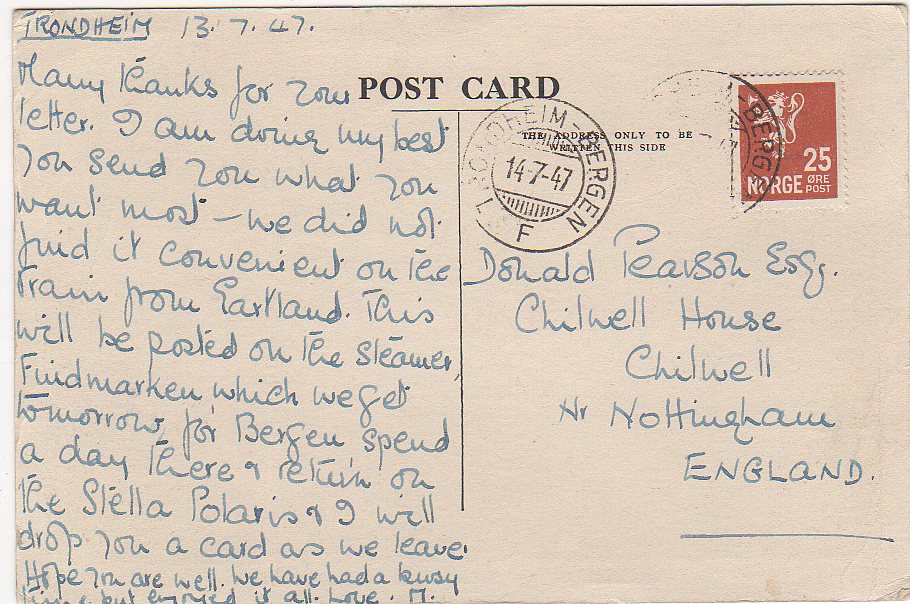 TRONDHEIM 13.7.47.
Many thanks for your
letter. I am doing my best
you send you what you
want most – we did not
find it convenient on the
train from Eartland. This
will be posted on the steamer,
Findmarken which we get
tomorrow, for Bergen, spend
a day there & return on
the Stella Polaris & I will
drop you a card as we leave.
Hope you are well. We have had a busy
time but enjoyed it all. Love. M.
POST CARD
THE ADDRESS ONLY TO BE
WRITTEN THIS SIDE
TRONDHEIM-BERGEN
14-7-47
F
BERGEN
25
NORGE ØRE
POST
Donald Pearson Esq.
Chilwell House
Chilwell
Nr Nottingham
ENGLAND.